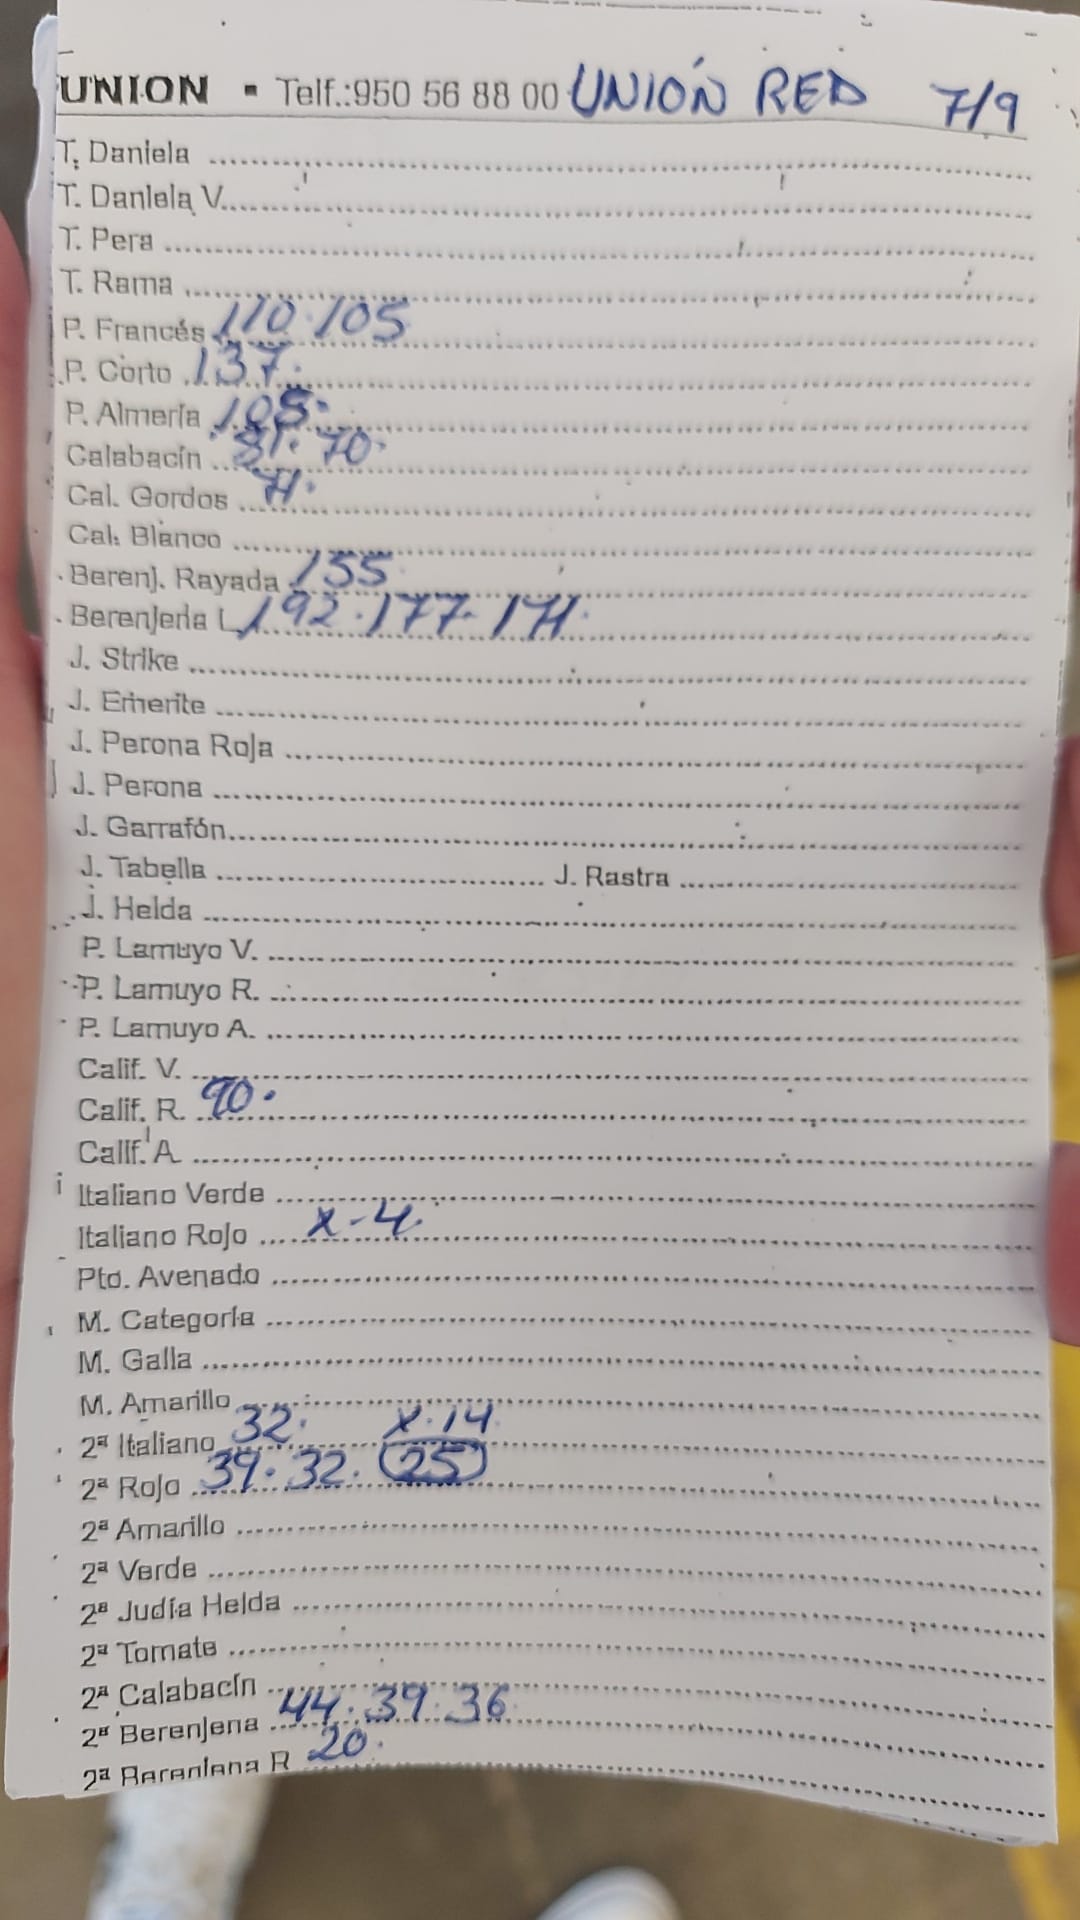 UNION ▪ Telf.:950 56 88 00 UNIÓN RED 7/9
T. Daniela
T. Daniela V.
T. Pera
T. Rama
P. Francés 110·105
P. Corto 137·
P. Almería 108·
Calabacín 81·70·
Cal. Gordos 71·
Cal. Blanco
Berenj. Rayada 155
Berenjena L 192·177·171·
J. Strike
J. Emerite
J. Perona Roja
J. Perona
J. Garrafón
J. Tabella J. Rastra
J. Helda
P. Lamuyo V.
P. Lamuyo R.
P. Lamuyo A.
Calif. V.
Calif. R. 90·
Calif. A
Italiano Verde
Italiano Rojo X-4·
Pto. Avenado
M. Categoría
M. Galia
M. Amarillo
2ª Italiano 32· X·14
2ª Rojo 39·32· 25
2ª Amarillo
2ª Verde
2ª Judía Helda
2ª Tomate
2ª Calabacín
2ª Berenjena 44·39·36
2ª Berenjena R 20·